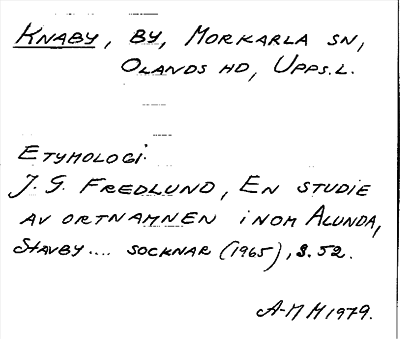 Knaby, by, Morkarla sn,
Olands hd, Upps.l.
Etymologi.
J. G. Fredlund, En studie
av ortnamnen inom Alunda,
Stavby .... socknar (1965), s. 52.
A-M H 1979.